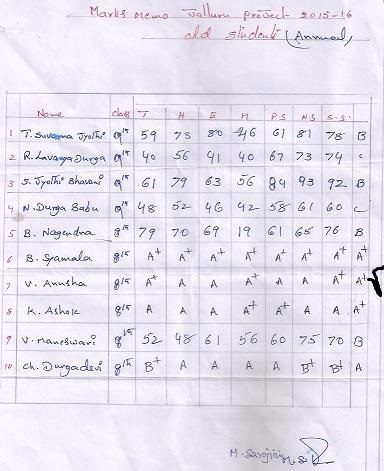 Marks Memo Valluru project 2015-16
old students (Annual)
Name class T H E M P.S N.S S.S.
1 T. Suvarna Jyothi 9th 59 73 80 46 61 81 75 B
2 R. Lavanya Durga 9th 40 56 41 40 67 73 74 C
3 S. Jyothi Bhavani 9th 61 79 63 56 84 93 92 B
4 N. Durga Babu 9th 48 52 46 42 58 61 60 C
5 B. Nagendra 8th 79 70 69 19 61 65 76 B
6 B. Syamala 8th A+ A+ A+ A+ A+ A+ A+ A+
7 V. Anusha 8th A+ A A A A A A+ A+
8 K. Ashok 8th A A A A+ A+ A A A+
9 V. Maneswari 8th 52 48 61 56 60 75 70 B
10 Ch. Durgadevi 8th B+ A A A A B+ B+ A
M. Sarojini